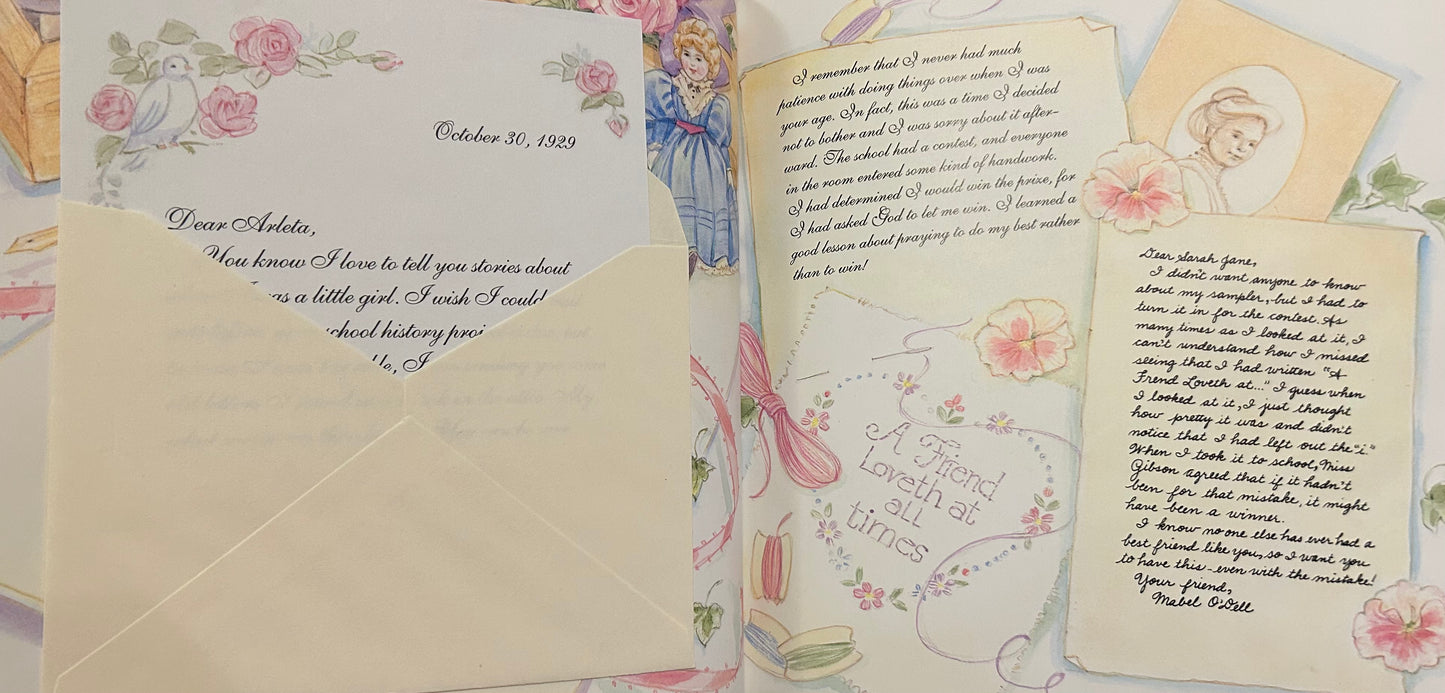 October 30, 1929
Dear Arleta,
You know I love to tell you stories about
was a little girl. I wish I could
school history proj
I
I remember that I never had much
patience with doing things over when I was
your age. In fact, this was a time I decided
not to bother and I was sorry about it after-
ward. The school had a contest, and everyone
in the room entered some kind of handwork.
I had determined I would win the prize, for
I had asked God to let me win. I learned a
good lesson about praying to do my best rather
than to win!
A Friend
Loveth at
all
times
Dear Sarah Jane,
I didn't want anyone to know
about my sampler, but I had to
turn it in for the contest. As
many times as I looked at it, I
can't understand how I missed
seeing that I had written "A
Frend Loveth at..." I guess when
I looked at it, I just thought
how pretty it was and didn't
notice that I had left out the "i."
When I took it to school, Miss
Gibson agreed that if it hadn't
been for that mistake, it might
have been a winner.
I know no one else has ever had a
best friend like you, so I want you
to have this - even with the mistake!
Your friend,
Mabel O'Dell